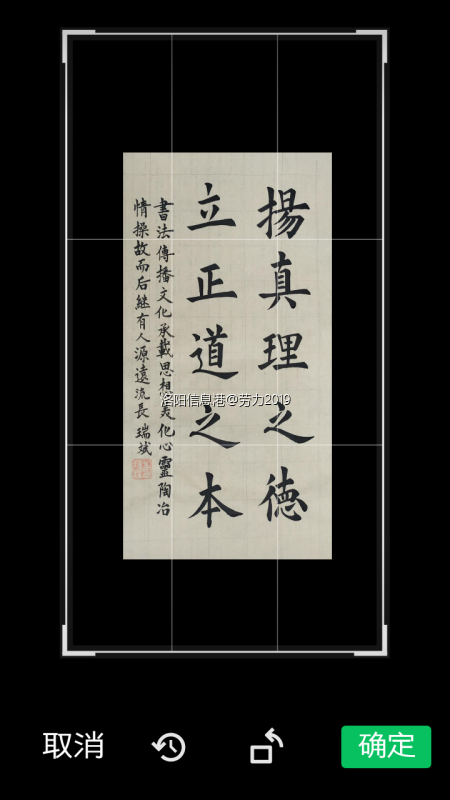 揚真理之德
立正道之本
書法傳播文化承載思想美化心靈陶冶
情操故而后継有人源遠流長 瑞斌
洛阳信息港@劳力2019
取消
确定